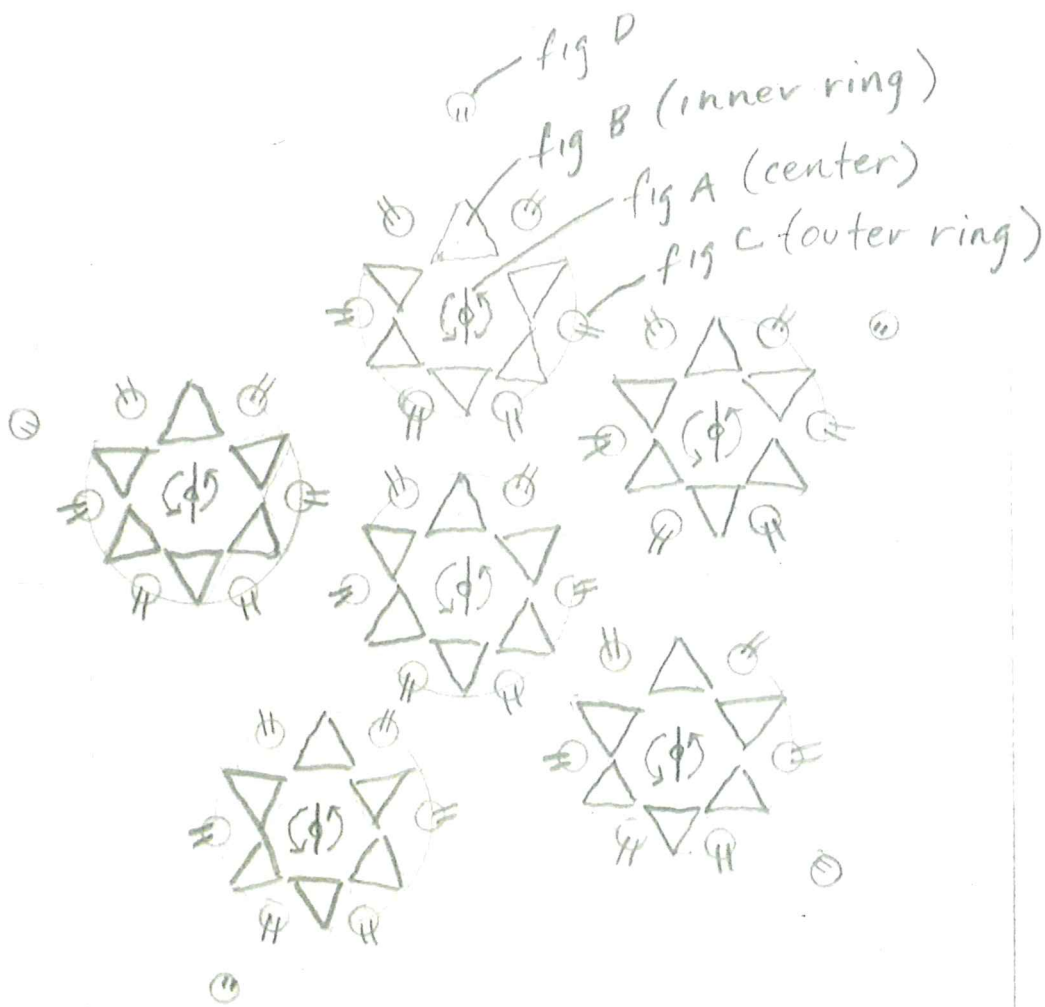 fig D
fig B (inner ring)
fig A (center)
fig C (outer ring)